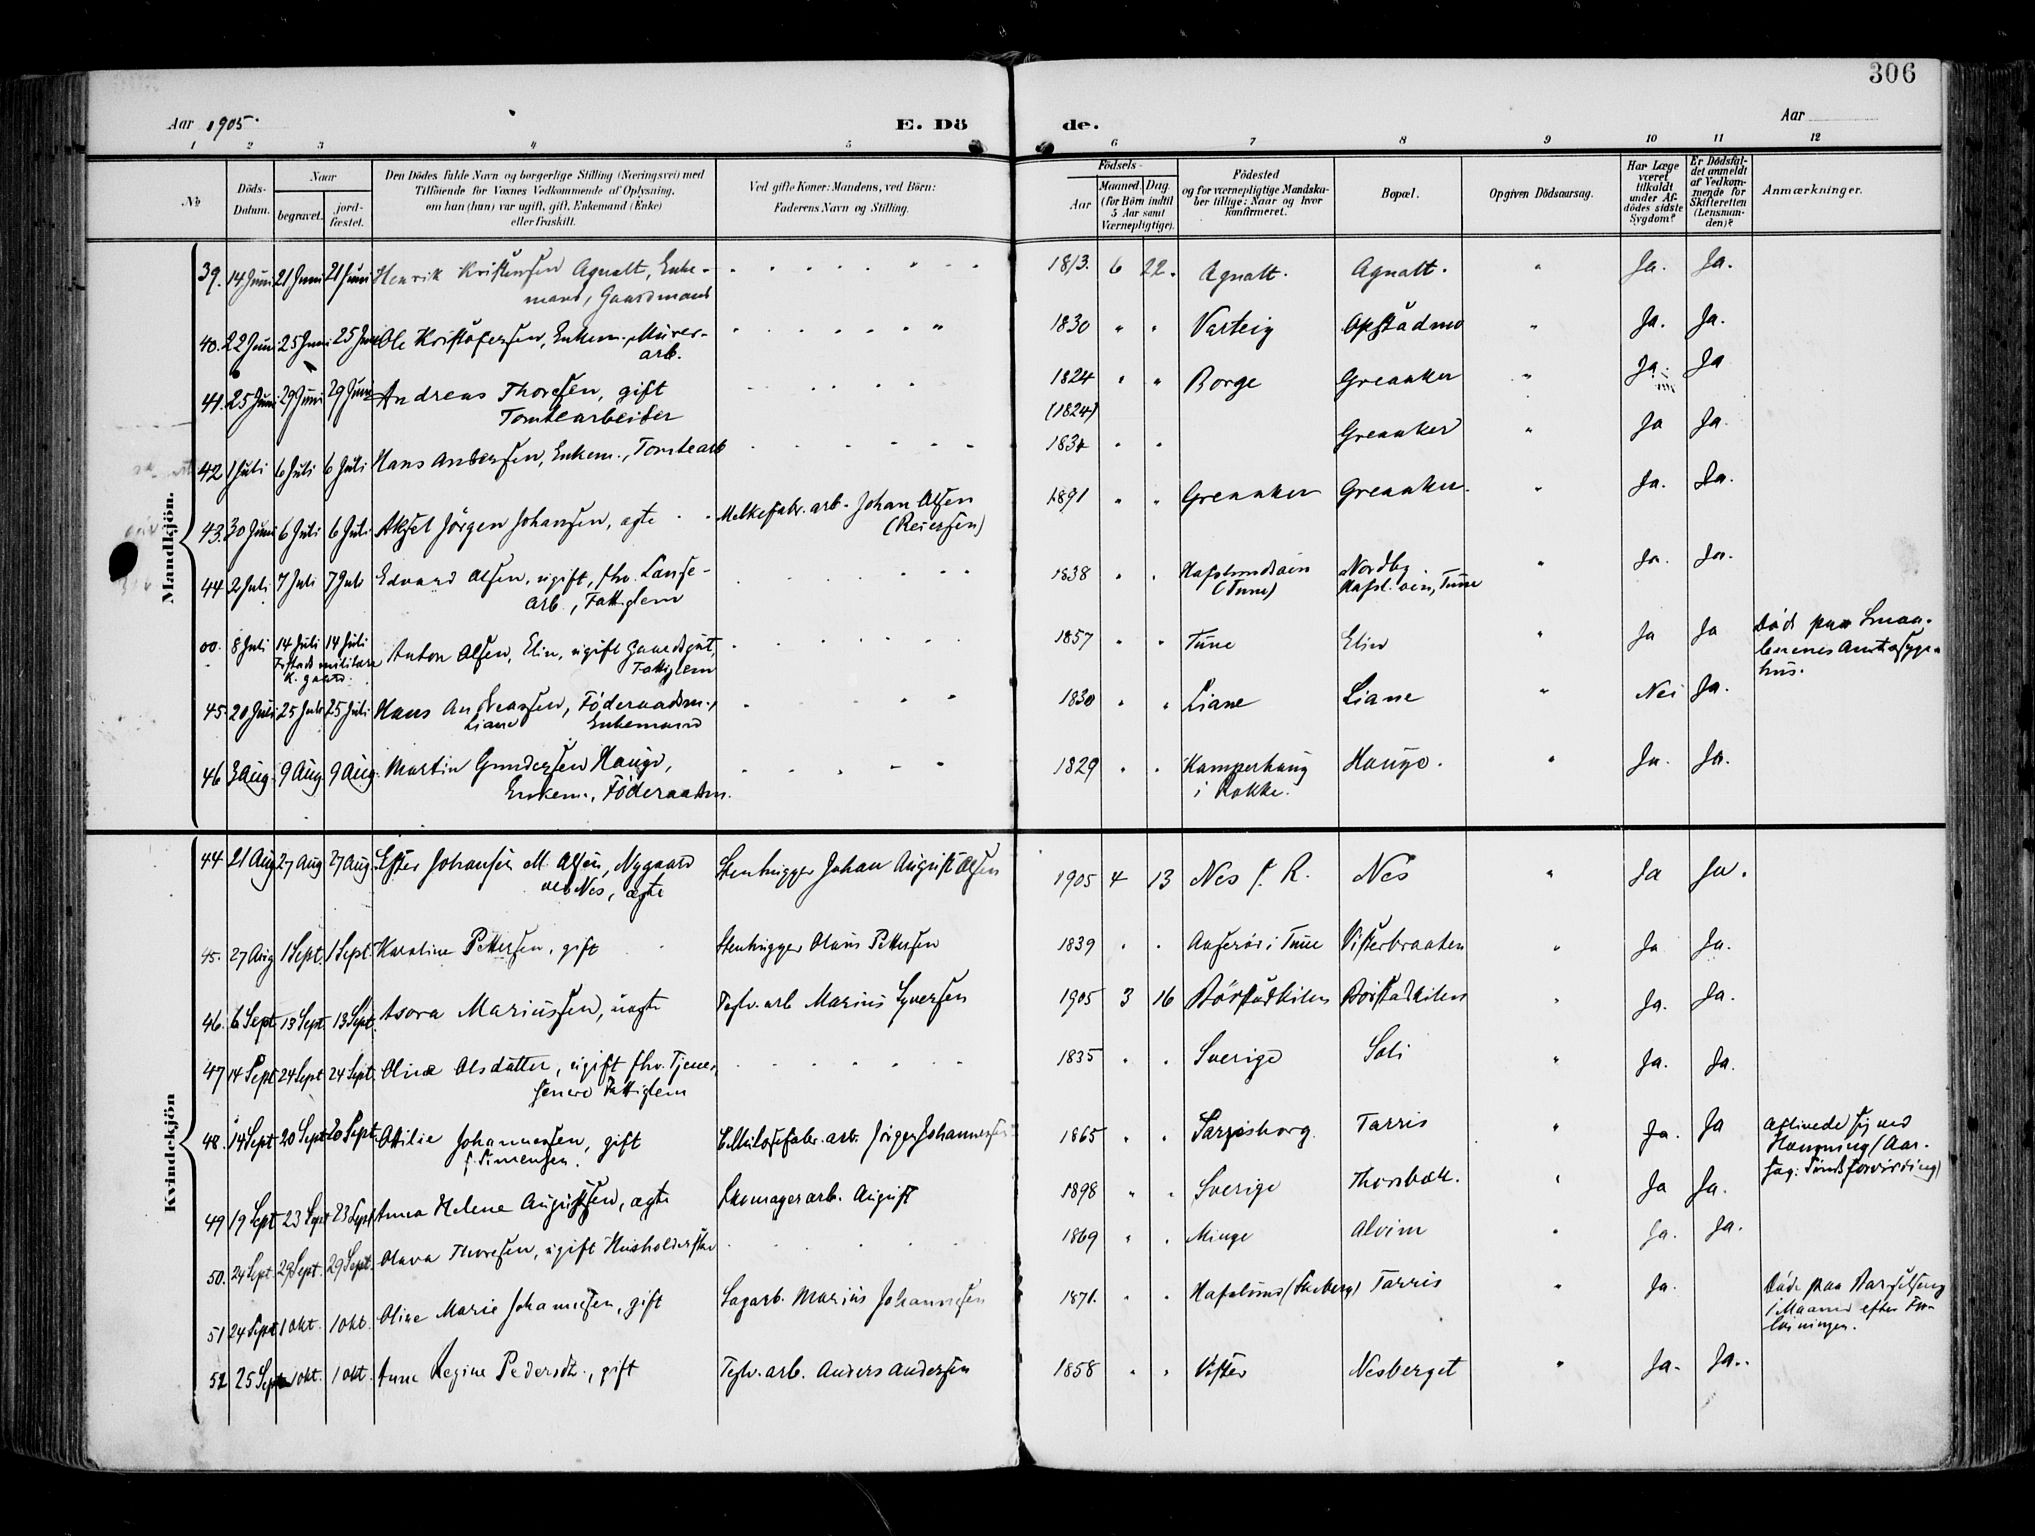 306
Aar 1905.
E. Dö
de.
Aar
1 2 3 4 5 6 7 8 9 10 11 12
No
Döds-Datum.
Naar
begravet.
jord-fæstet.
Den Dödes fulde Navn og borgerlige Stilling (Næringsvei) med
Tilföiende for Voxnes Vedkommende af Oplysning,
om han (hun) var ugift, gift, Enkemand (Enke)
eller fraskilt.
Ved gifte Koner: Mandens, ved Börn:
Faderens Navn og Stilling.
Födsels-
Aar
Maaned. Dag.
(for Börn indtil
5 Aar samt
Værnepligtige).
Födested
og for værnepligtige Mandska-
ber tillige: Naar og hvor
konfirmeret.
Bopæl.
Opgiven Dödsaarsag.
Har Læge
været
tilkaldt
under Af-
dödes sidste
Sygdom?
Er Dödsfal-
det anmeldt
af Vedkom-
mende for
Skifteretten
(Lensman-
den)?
Anmærkninger.
Mandkjön.
39. 14 Juni 21 Juni 21 Juni Henrik Kristensen Agnalt, Enke- 1813. 6 22. Agnalt. Agnalt. " Ja. Ja.
mand, Gaardmand
40. 22 Juni 25 Juni 25 Juni Ole Kristofersen, Enkem., Murer- 1830 " " Varteig Opstadmo " Ja. Ja.
arb.
41. 25 Juni 29 Juni 29 Juni Andreas Thoresen, gift 1824 " " Borge Greaaker " Ja. Ja
Tomtearbeider (1824)
42. 1 Juli 6 Juli 6 Juli Hans Andersen, Enkem., Tomtearb 1834 " " Greaaker " Ja Ja.
43. 30 Juni 6 Juli 6 Juli Aksel Jörgen Johansen, ægte Melkefabr. arb. Johan Olsen 1891 " " Greaaker Greaaker. " Ja. Ja.
(Reiersen)
44 2 Juli 7 Juli 7 Juli Edvard Olsen, ugift, fhv. Lanse- 1838 " " Hafslundsøen Nordby " Ja. Ja.
arb., Fattiglem (Tune) Hafsl.øen, Tune
00. 8 Juli 14 Juli 14 Juli Anton Olsen, Elin, ugift Gaardsgut, 1857 " " Tune Elin " Ja Ja Död paa Smaa-
Fr.stads militære Fattiglem lenenes Amtssyge-
K. gaard. hus.
45. 20 Juli 25 Juli 25 Juli Hans Andreassen, Föderaadsm., 1830 " " Liane Liane " Nei Ja.
Liane Enkemand
46 3 Aug. 9 Aug 9 Aug. Martin Gundersen Hauge, 1829 " " Kamperhaug Hauge. " Ja. Ja.
Enkem., Föderaadsm. i Rokke.
Kvindekjön
44 21 Aug 27 Aug 27 Aug. Ester Johansen M. Olsen, Nygaard Stenhugger Johan August Olsen 1905 4 13 Nes f. R. Nes " Ja Ja.
ved Nes, ægte
45. 27 Aug 1 Sept. 1 Sept. Karoline Pettersen, gift Stenhugger Olaus Pettersen 1839 " " i Tune Visterbraaten " Ja Ja.
46. 6 Sept. 13 Sept. 13 Sept. Asora Mariussen, uægte Teglv. arb Marius Syversen 1905 3 16 Börstadkilen Börstadkilen " Ja. Ja.
47 14 Sept 24 Sept 24 Sept. Oline Olsdatter, ugift fhv. Tjene- 1835 " " Sverige Soli " Ja. Ja.
senere Fattiglem
48. 14 Sept 20 Sept 20 Sept. Otilie Johannessen, gift Cellulosefabr. arb. Jörgen Johannessen 1865 " " Sarpsborg. Tarris Ja. Ja Aflivede sig ved
f. Simensen. Hængning (Aar-
sag: Sindsforvirring)
49 19 Sept. 23 Sept 23 Sept Anna Helene Augustsen, ægte Skomagerarb. August 1898 " " Sverige Thorsbæk. " Ja Ja.
50. 24 Sept. 29 Sept. 29 Sept. Olava Thoresen, ugift Husholderske 1869 " " Minge Alvim " Ja. Ja.
51 24 Sept 1 Okt. 1 Okt. Oline Marie Johannesen, gift Sagarb. Marius Johannesen 1871. " " Hafslund (Skeberg) Tarris " Ja. Döde paa Barselseng
1 Maaned efter For-
lösningen.
52 25 Sept 1 Okt. 1 Okt. Anne Regine Pedersdt., gift Teglv. arb. Anders Andersen 1858 " " Vister Nesberget " Ja. Ja.